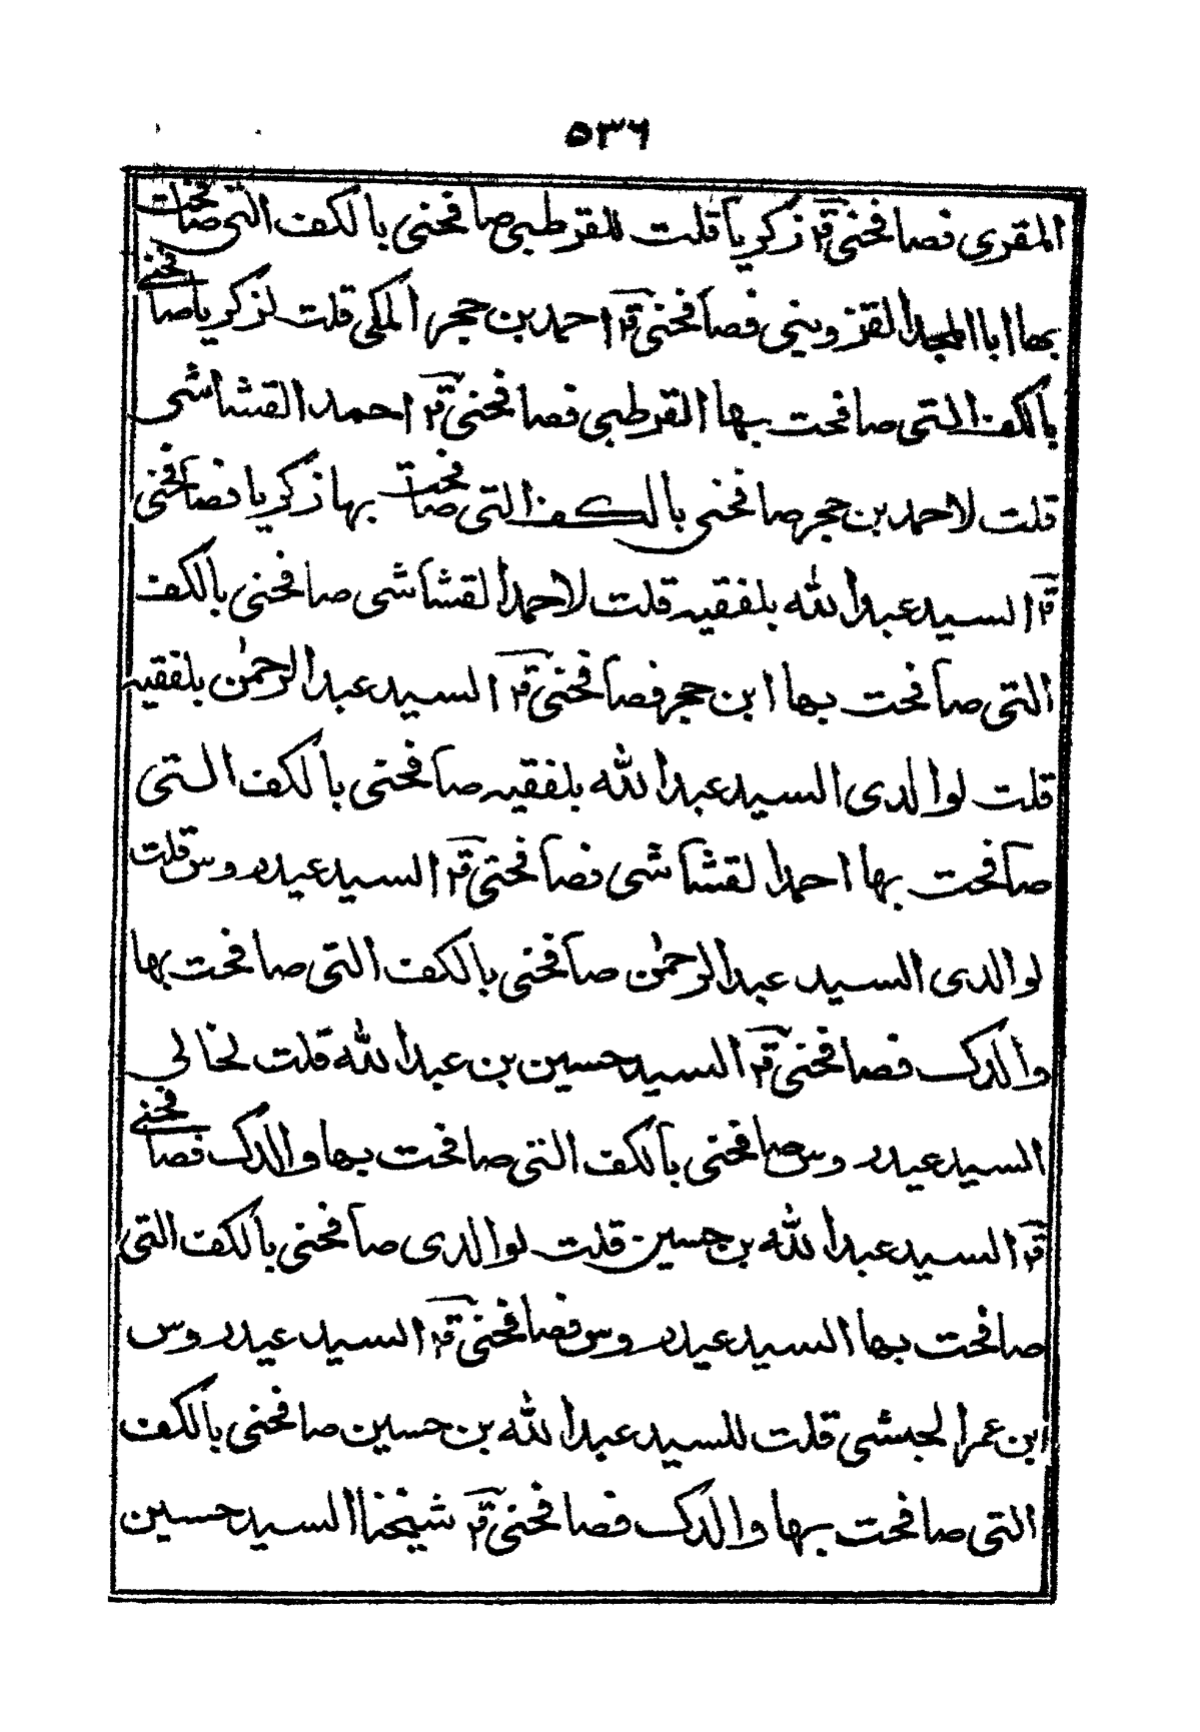 ٥٣٦
المقري فصافحني قٓ زكريا قلت للقرطبي صافحني بالكف التي صافحت
بها ابا المجد القزويني فصافحني قٓ احمد بن حجر المكي قلت لزكريا صافحني
بالكف التي صافحت بها القرطبي فصافحني قٓ احمد القشاشى
قلت لاحمد بن حجر صافحني بالكف التي صافحت بها زكريا فصافحني
قٓ السيد عبد الله بلفقيه قلت لاحمد القشاشى صافحني بالكف
التي صافحت بها ابن حجر فصافحني قٓ السيد عبد الرحمٰن بلفقيه
قلت لوالدى السيد عبد الله بلفقيه صافحني بالكف التي
صافحت بها احمد القشاشى فصافحني قٓ السيد عيدروس قلت
لوالدى السيد عبد الرحمٰن صافحني بالكف التي صافحت بها
والدك فصافحني قٓ السيد حسين بن عبد الله قلت لخالي
السيد عيدروس صافحني بالكف التي صافحت بها والدك فصافحني
قٓ السيد عبد الله بن حسين قلت لوالدى صافحني بالكف التي
صافحت بها السيد عيدروس فصافحني قٓ السيد عيدروس
ابن عمر الحبشي قلت للسيد عبد الله بن حسين صافحني بالكف
التي صافحت بها والدك فصافحني قٓ شيخنا السيد حسين